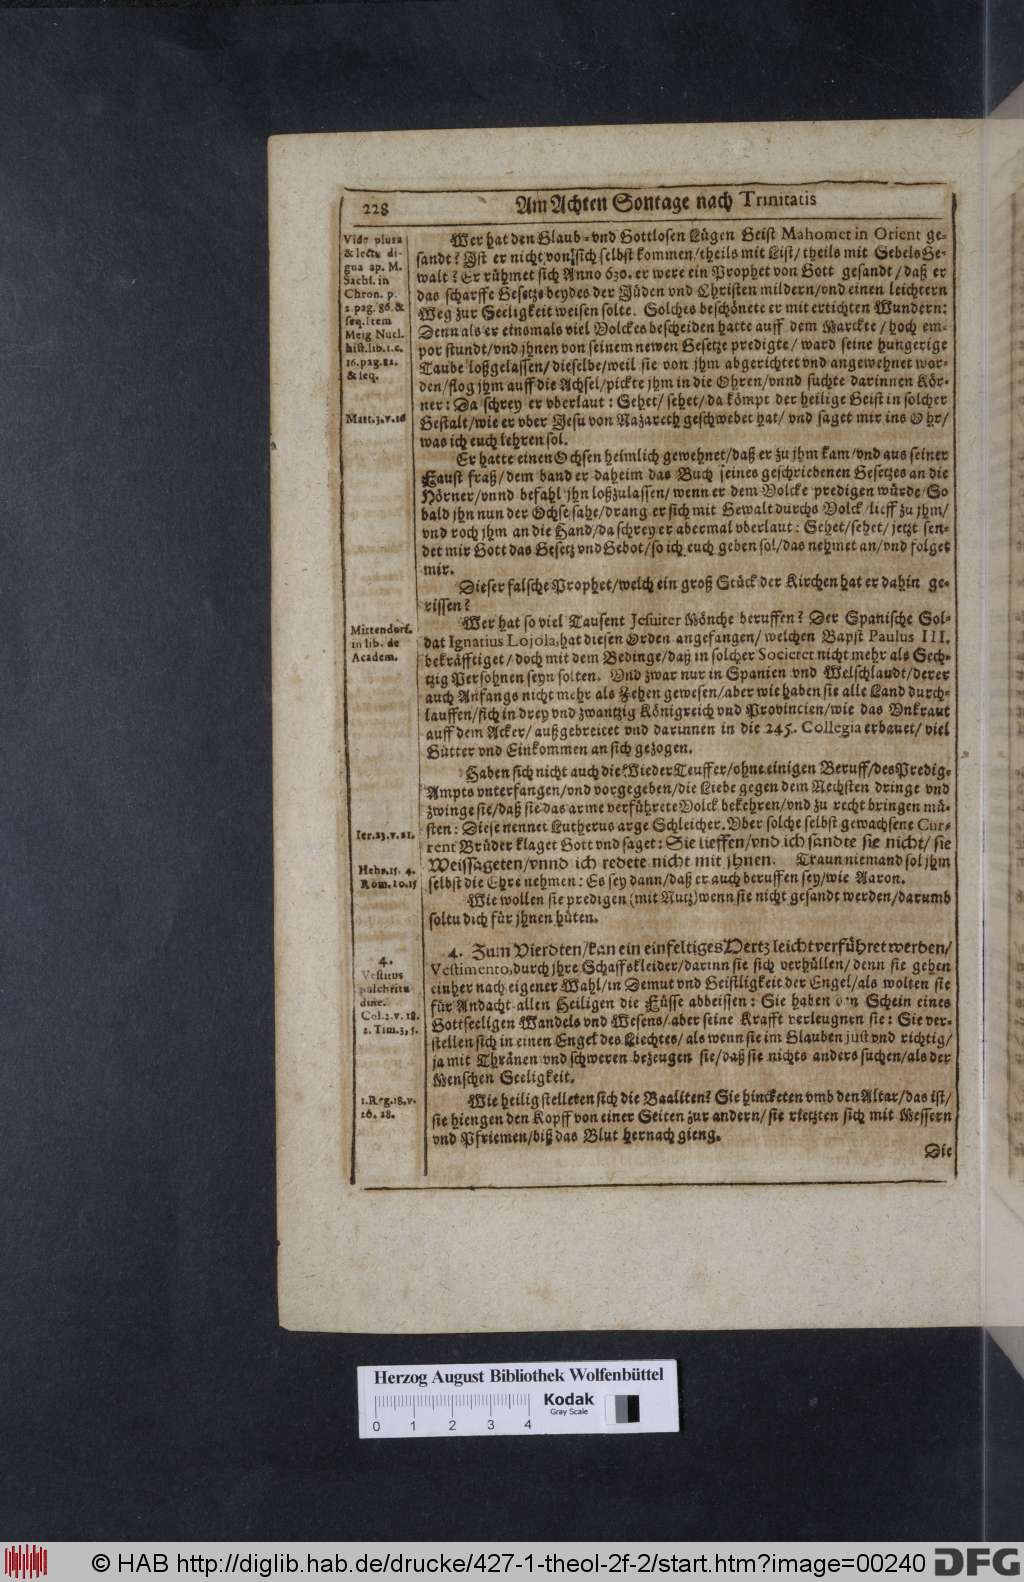 228
Am Achten Sontage nach Trinitatis
Vide plura
& lectu di-
gna ap. M.
Sachs. in
Chron. p.
2. pag. 86. &
seq. Item
Meig Nucl.
hist. lib. 1. c.
16. pag. 82.
& seq.
Matt. 3. v. 16
Wer hat den Glaub- vnd Gottlosen Lügen Geist Mahomet in Orient ge-
sandt? Ist er nicht von sich selbst kommen/theils mit List/theils mit Sebels Ge-
walt? Er rühmet sich Anno 630. er were ein Prophet von Gott gesandt/daß er
das scharffe Gesetze beydes der Jüden vnd Christen mildern/vnd einen leichtern
Weg zur Seeligkeit weisen solte. Solches beschönete er mit ertichten Wundern:
Denn als er einsmals viel Volckes bescheiden hatte auff dem Marckte/hoch em-
por stundt/vnd jhnen von seinem newen Gesetze predigte/ward seine hungerige
Taube loßgelassen/dieselbe/weil sie von jhm abgerichtet vnd angewehnet wor-
den/flog jhm auff die Achsel/pickte jhm in die Ohren/vnnd suchte darinnen Kör-
ner: Da schrey er vberlaut: Sehet/sehet/da kömpt der heilige Geist in solcher
Gestalt/wie er vber Jesu von Nazareth geschwebet hat/vnd saget mir ins Ohr/
was ich euch lehren sol.
Er hatte einen Ochsen heimlich gewehnet/daß er zu jhm kam/vnd aus seiner
Faust fraß/dem band er daheim das Buch seines geschriebenen Gesetzes an die
Hörner/vnnd befahl jhn loßzulassen/wenn er dem Volcke predigen würde/So
bald jhn nun der Ochse sahe/drang er sich mit Gewalt durchs Volck/lieff zu jhm/
vnd roch jhm an die Hand/da schrey er abermal vberlaut: Sehet/sehet/jetzt sen-
det mir Gott das Gesetz vnd Gebot/so ich euch geben sol/das nehmet an/vnd folget
mir.
Dieser falsche Prophet/welch ein groß Stück der Kirchen hat er dahin ge-
rissen?
Mittendorf.
in lib. de
Academ.
Wer hat so viel Tausent Jesuiter Mönche beruffen? Der Spanische Sol-
dat Ignatius Lojola, hat diesen Orden angefangen/welchen Bapst Paulus III.
bekräfftiget/doch mit dem Bedinge/daß in solcher Societet nicht mehr als Sech-
tzig Persohnen seyn solten. Vnd zwar nur in Spanien vnd Welschlandt/derer
auch Anfangs nicht mehr als Zehen gewesen/aber wie haben sie alle Land durch-
lauffen/sich in drey vnd zwantzig Königreich vnd Provincien/wie das Vnkraut
auff dem Acker/außgebreitet vnd darinnen in die 245. Collegia erbauet/viel
Gütter vnd Einkommen an sich gezogen.
Haben sich nicht auch die WiederTeuffer/ohne einigen Beruff/des Predig-
Ampts vnterfangen/vnd vorgegeben/die Liebe gegen dem Nechsten dringe vnd
zwinge sie/daß sie das arme verführete Volck bekehren/vnd zu recht bringen mü-
Ier. 23. v. 21.
sten: Diese nennet Lutherus arge Schleicher. Vber solche selbst gewachsene Cur-
rent Brüder klaget Gott vnd saget: Sie lieffen/vnd ich sandte sie nicht/sie
Hebr. 15. 4.
Weissageten/vnnd ich redete nicht mit jhnen. Traun niemand sol jhm
Rom. 10. 15
selbst die Ehre nehmen: Es sey dann/daß er auch beruffen sey/wie Aaron.
Wie wollen sie predigen (mit Nutz) wenn sie nicht gesandt werden/darumb
soltu dich für jhnen hüten.
4.
Vestitus
pulchritu
dine.
Col. 2. v. 18.
2. Tim. 3, 5.
4. Zum Vierdten/kan ein einfeltiges Hertz leicht verführet werden/
Vestimento, durch jhre Schaffskleider/darinn sie sich verhüllen/denn sie gehen
einher nach eigener Wahl/in Demut vnd Geistligkeit der Engel/als wolten sie
für Andacht allen Heiligen die Füsse abbeissen: Sie haben den Schein eines
Gottseeligen Wandels vnd Wesens/aber seine Krafft verleugnen sie: Sie ver-
stellen sich in einen Engel des Liechtes/als wenn sie im Glauben just vnd richtig/
ja mit Thränen vnd schweren bezeugen sie/daß sie nichts anders suchen/als der
Menschen Seeligkeit.
1. Reg. 18. v.
26. 28.
Wie heilig stelleten sich die Baaliten? Sie hincketen vmb den Altar/das ist/
sie hiengen den Kopff von einer Seiten zur andern/sie rietzten sich mit Messern
vnd Pfriemen/biß das Blut hernach gieng.
Die
Herzog August Bibliothek Wolfenbüttel
0 1 2 3 4
Kodak
Gray Scale
© HAB http://diglib.hab.de/drucke/427-1-theol-2f-2/start.htm?image=00240
DFG